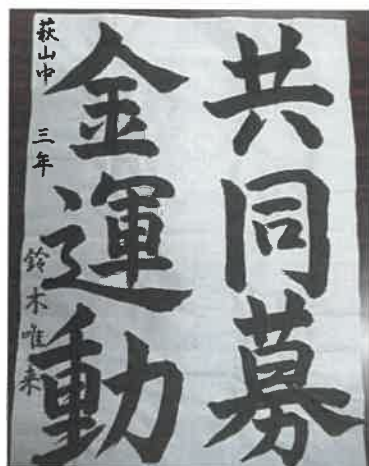 共同募
金運動
萩山中 三年
鈴木唯来